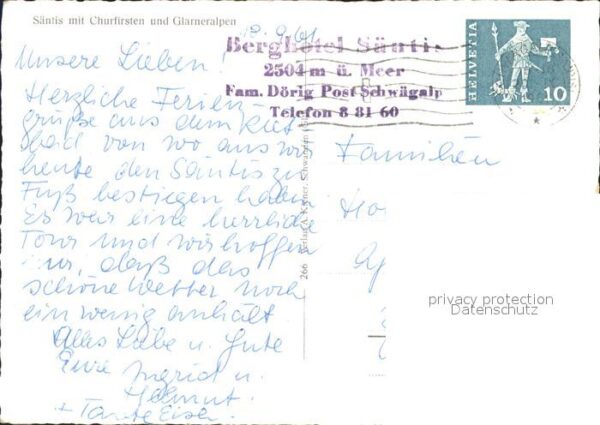 Säntis mit Churfirsten und Glarneralpen
Berghotel Säntis
2504 m ü. Meer
Fam. Dörig Post Schwägalp
Telefon 8 81 60
HELVETIA
10
Unsere Lieben!
Herzliche Ferien-
grüße aus dem
von wo aus wir
heute den Säntis zu
Fuß bestiegen haben
Es war eine herrliche
Tour und wir hoffen
nur, daß das
schöne Wetter noch
ein wenig anhält
Alles Liebe u. Gute
Eure Ingrid u.
Helmut
+ Tante
Familien
266
privacy protection
Datenschutz